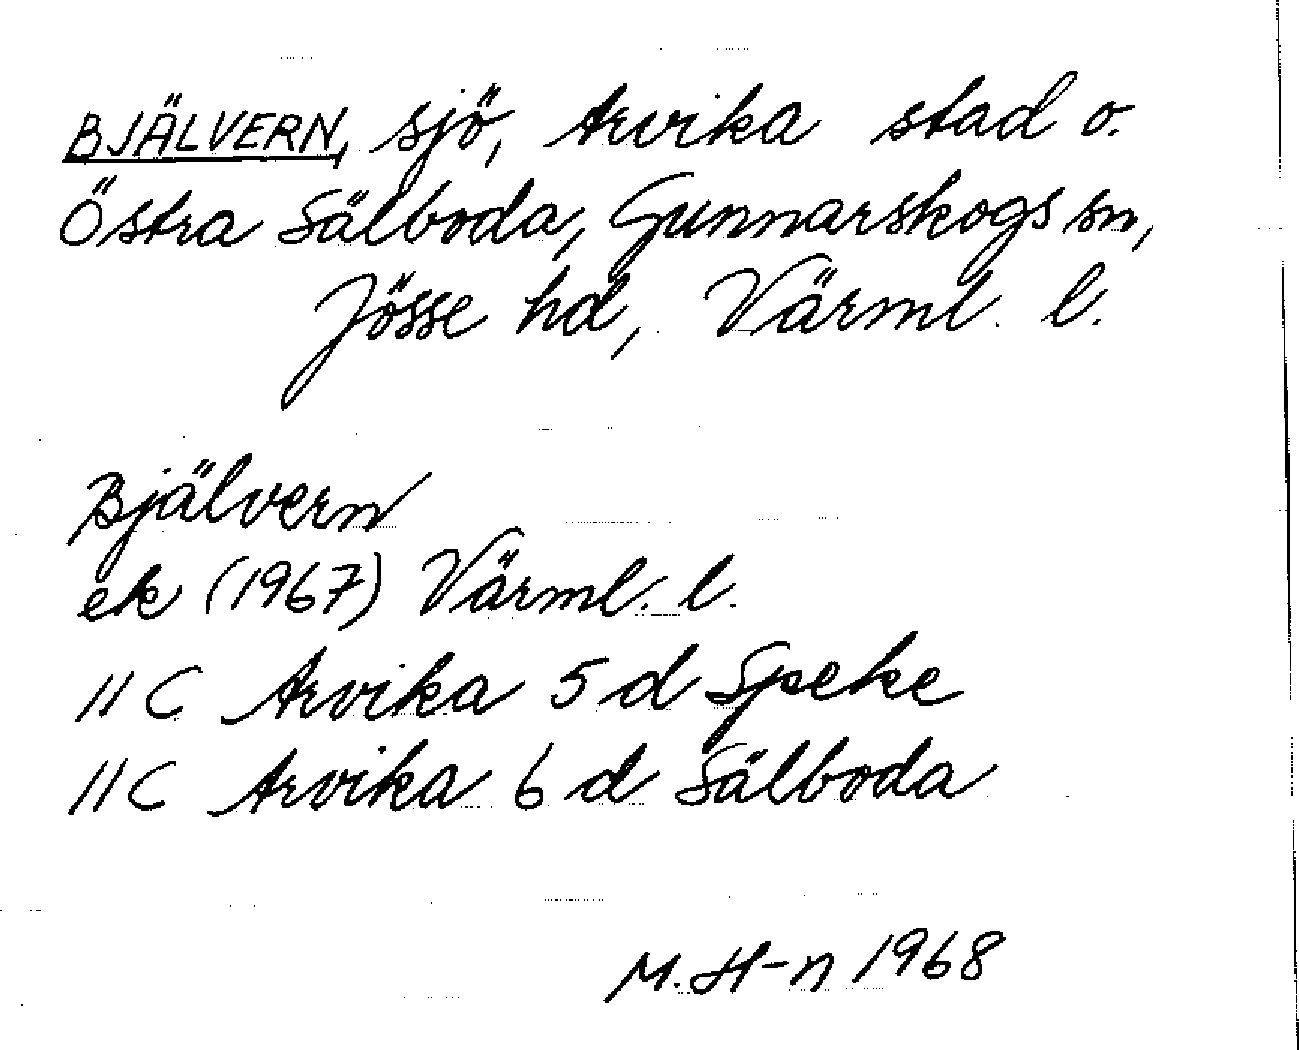 BJÄLVERN, sjö, Arvika stad o.
Östra Sälboda, Gunnarskogs sn,
Jösse hd, Värml. l.
Bjälvern
ek (1967) Värml. l.
11 C Arvika 5 d Speke
11 C Arvika 6 d Sälboda
M. H-n 1968